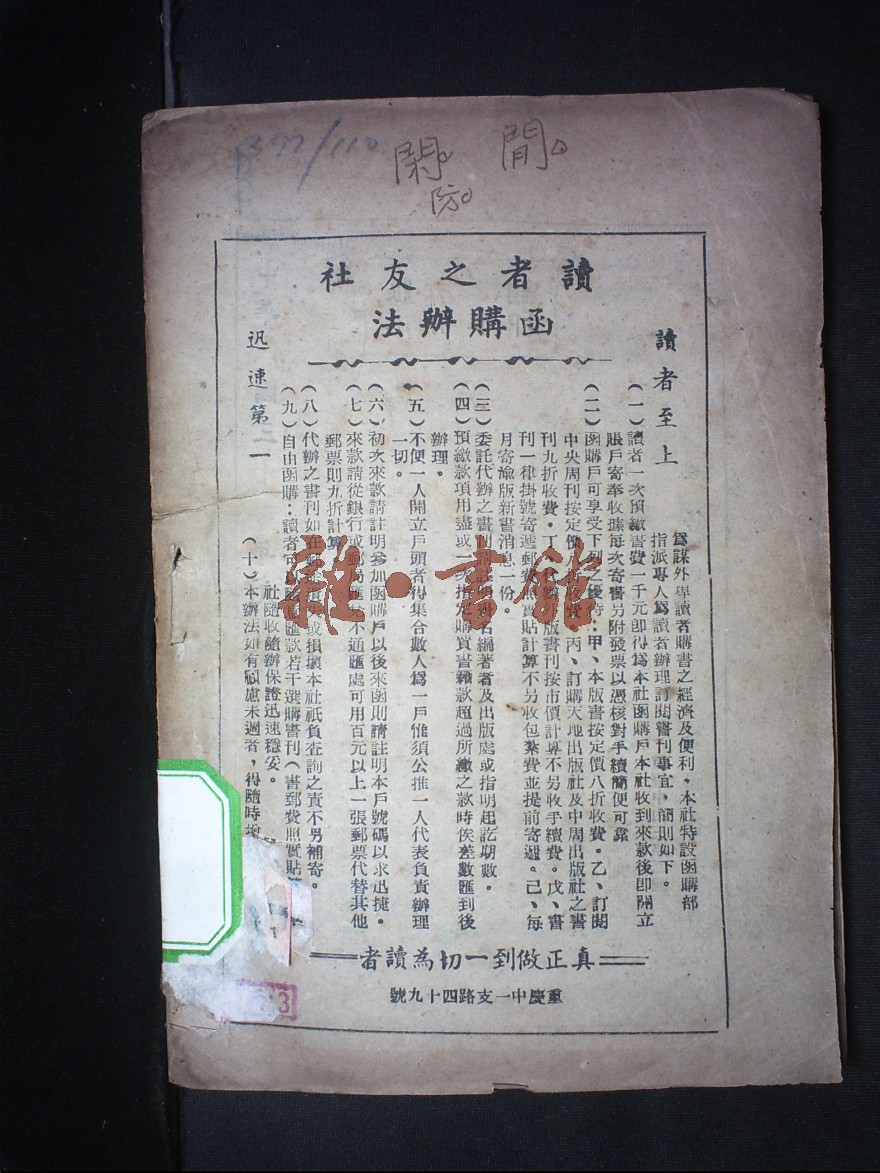 392/110
閒
防
讀者之友社
函購辦法
讀者至上
迅速第一
為謀外埠讀者購書之經濟及便利,本社特設函購部
指派專人為讀者辦理訂閱書刊事宜,簡則如下。
(一)讀者一次預繳書費一千元即得為本社函購戶本社收到來款後即開立
賬戶寄奉收據每次寄書另附發票以憑核對手續簡便可靠
(二)函購戶可享受下列之優待:甲、本版書按定價八折收費。乙、訂閱
中央周刊按定價八 費 丙、訂購天地出版社及中周出版社之書
刊九折收費。丁、代辦外版書刊按市價計算不另收手續費。戊、書
刊一律掛號寄遞郵費照實貼計算不另收包紮費並提前寄遞。己、每
月寄渝版新書消息一份。
(三)委託代辦之書刊請註明書名編著者及出版處或指明起訖期數。
(四)預繳款項用盡或一次指定購買書籍款超過所繳之款時俟差數匯到後
辦理。
(五)不便一人開立戶頭者得集合數人為一戶惟須公推一人代表負責辦理
一切。
(六)初次來款請註明參加函購戶以後來函則請註明本戶號碼以求迅捷。
(七)來款請從銀行或郵局匯 不通匯處可用百元以上一張郵票代替其他
郵票則九折計算
(八)代辦之書刊如在郵 損失或損壞本社祇負查詢之責不另補寄。
(九)自由函購:讀者可 匯款若干選購書刊(書郵費照實貼
社隨收隨辦保證迅速穩妥。
(十)本辦法如有顧慮未週者,得隨時
真正做到一切為讀者
重慶中一支路四十九號
雜·書館
3